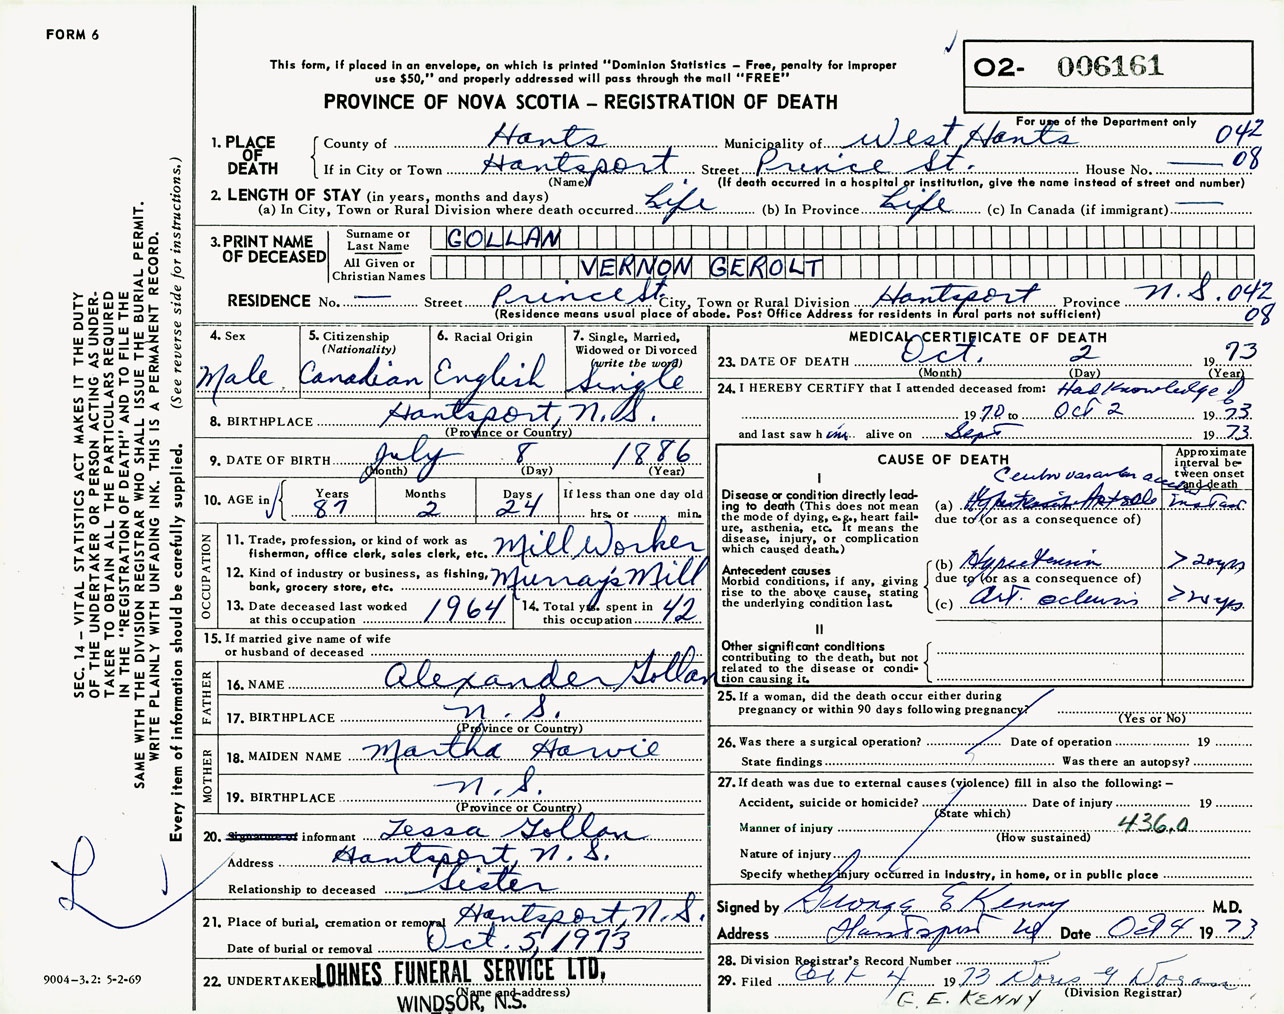 FORM 6
This form, if placed in an envelope, on which is printed "Dominion Statistics – Free, penalty for improper
use $50," and properly addressed will pass through the mail "FREE"
PROVINCE OF NOVA SCOTIA – REGISTRATION OF DEATH
O2- 006161
For use of the Department only
1. PLACE OF DEATH
County of Hants Municipality of West Hants 042
If in City or Town Hantsport Street Prince St. House No. — 08
(Name) (If death occurred in a hospital or institution, give the name instead of street and number)
2. LENGTH OF STAY (in years, months and days)
(a) In City, Town or Rural Division where death occurred Life (b) In Province Life (c) In Canada (if immigrant) —
3. PRINT NAME OF DECEASED
Surname or Last Name GOLLAN
All Given or Christian Names VERNON GEROLT
RESIDENCE No. — Street Prince St. City, Town or Rural Division Hantsport Province N.S. 042
(Residence means usual place of abode. Post Office Address for residents in rural parts not sufficient) 08
4. Sex Male
5. Citizenship (Nationality) Canadian
6. Racial Origin English
7. Single, Married, Widowed or Divorced (write the word) Single
8. BIRTHPLACE Hantsport, N.S.
(Province or Country)
9. DATE OF BIRTH July 8 1886
(Month) (Day) (Year)
10. AGE in Years 87 Months 2 Days 24 If less than one day old hrs. or min.
OCCUPATION
11. Trade, profession, or kind of work as fisherman, office clerk, sales clerk, etc. Mill Worker
12. Kind of industry or business, as fishing, bank, grocery store, etc. Murray's Mill
13. Date deceased last worked at this occupation 1964
14. Total yrs. spent in this occupation 42
15. If married give name of wife or husband of deceased
FATHER
16. NAME Alexander Gollan
17. BIRTHPLACE N.S.
(Province or Country)
MOTHER
18. MAIDEN NAME Martha Harvie
19. BIRTHPLACE N.S.
(Province or Country)
20. Signature of informant Tessa Gollan
Address Hantsport, N.S.
Relationship to deceased Sister
21. Place of burial, cremation or removal Hantsport, N.S.
Date of burial or removal Oct. 5, 1973
22. UNDERTAKER LOHNES FUNERAL SERVICE LTD,
(Name and address)
WINDSOR, N.S.
MEDICAL CERTIFICATE OF DEATH
23. DATE OF DEATH Oct. 2 1973
(Month) (Day) (Year)
24. I HEREBY CERTIFY that I attended deceased from: Had Knowledge of
1970 to Oct 2 1973
and last saw him alive on Sept 1973
CAUSE OF DEATH
Approximate interval between onset and death
I
Disease or condition directly leading to death (This does not mean the mode of dying, e.g., heart failure, asthenia, etc. It means the disease, injury, or complication which caused death.)
(a)
due to (or as a consequence of)
Antecedent causes
Morbid conditions, if any, giving rise to the above cause, stating the underlying condition last.
(b) Hypertension > 20 yrs
due to (or as a consequence of)
(c) Art. > 20 yrs
II
Other significant conditions
contributing to the death, but not related to the disease or condition causing it.
25. If a woman, did the death occur either during
pregnancy or within 90 days following pregnancy?
(Yes or No)
26. Was there a surgical operation? Date of operation 19
State findings Was there an autopsy?
27. If death was due to external causes (violence) fill in also the following: –
Accident, suicide or homicide? Date of injury 19
(State which)
Manner of injury 436.0
(How sustained)
Nature of injury
Specify whether injury occurred in industry, in home, or in public place
Signed by George E Kenny M.D.
Address Hantsport NS Date Oct 4 1973
28. Division Registrar's Record Number
29. Filed Oct 4 1973 Doris G
(Division Registrar)
G. E. KENNY
SEC. 14 – VITAL STATISTICS ACT MAKES IT THE DUTY
OF THE UNDERTAKER OR PERSON ACTING AS UNDER-
TAKER TO OBTAIN ALL THE PARTICULARS REQUIRED
IN THE "REGISTRATION OF DEATH" AND TO FILE THE
SAME WITH THE DIVISION REGISTRAR WHO SHALL ISSUE THE BURIAL PERMIT.
WRITE PLAINLY WITH UNFADING INK. THIS IS A PERMANENT RECORD.
Every item of information should be carefully supplied. (See reverse side for instructions.)
9004–3.2: 5-2-69